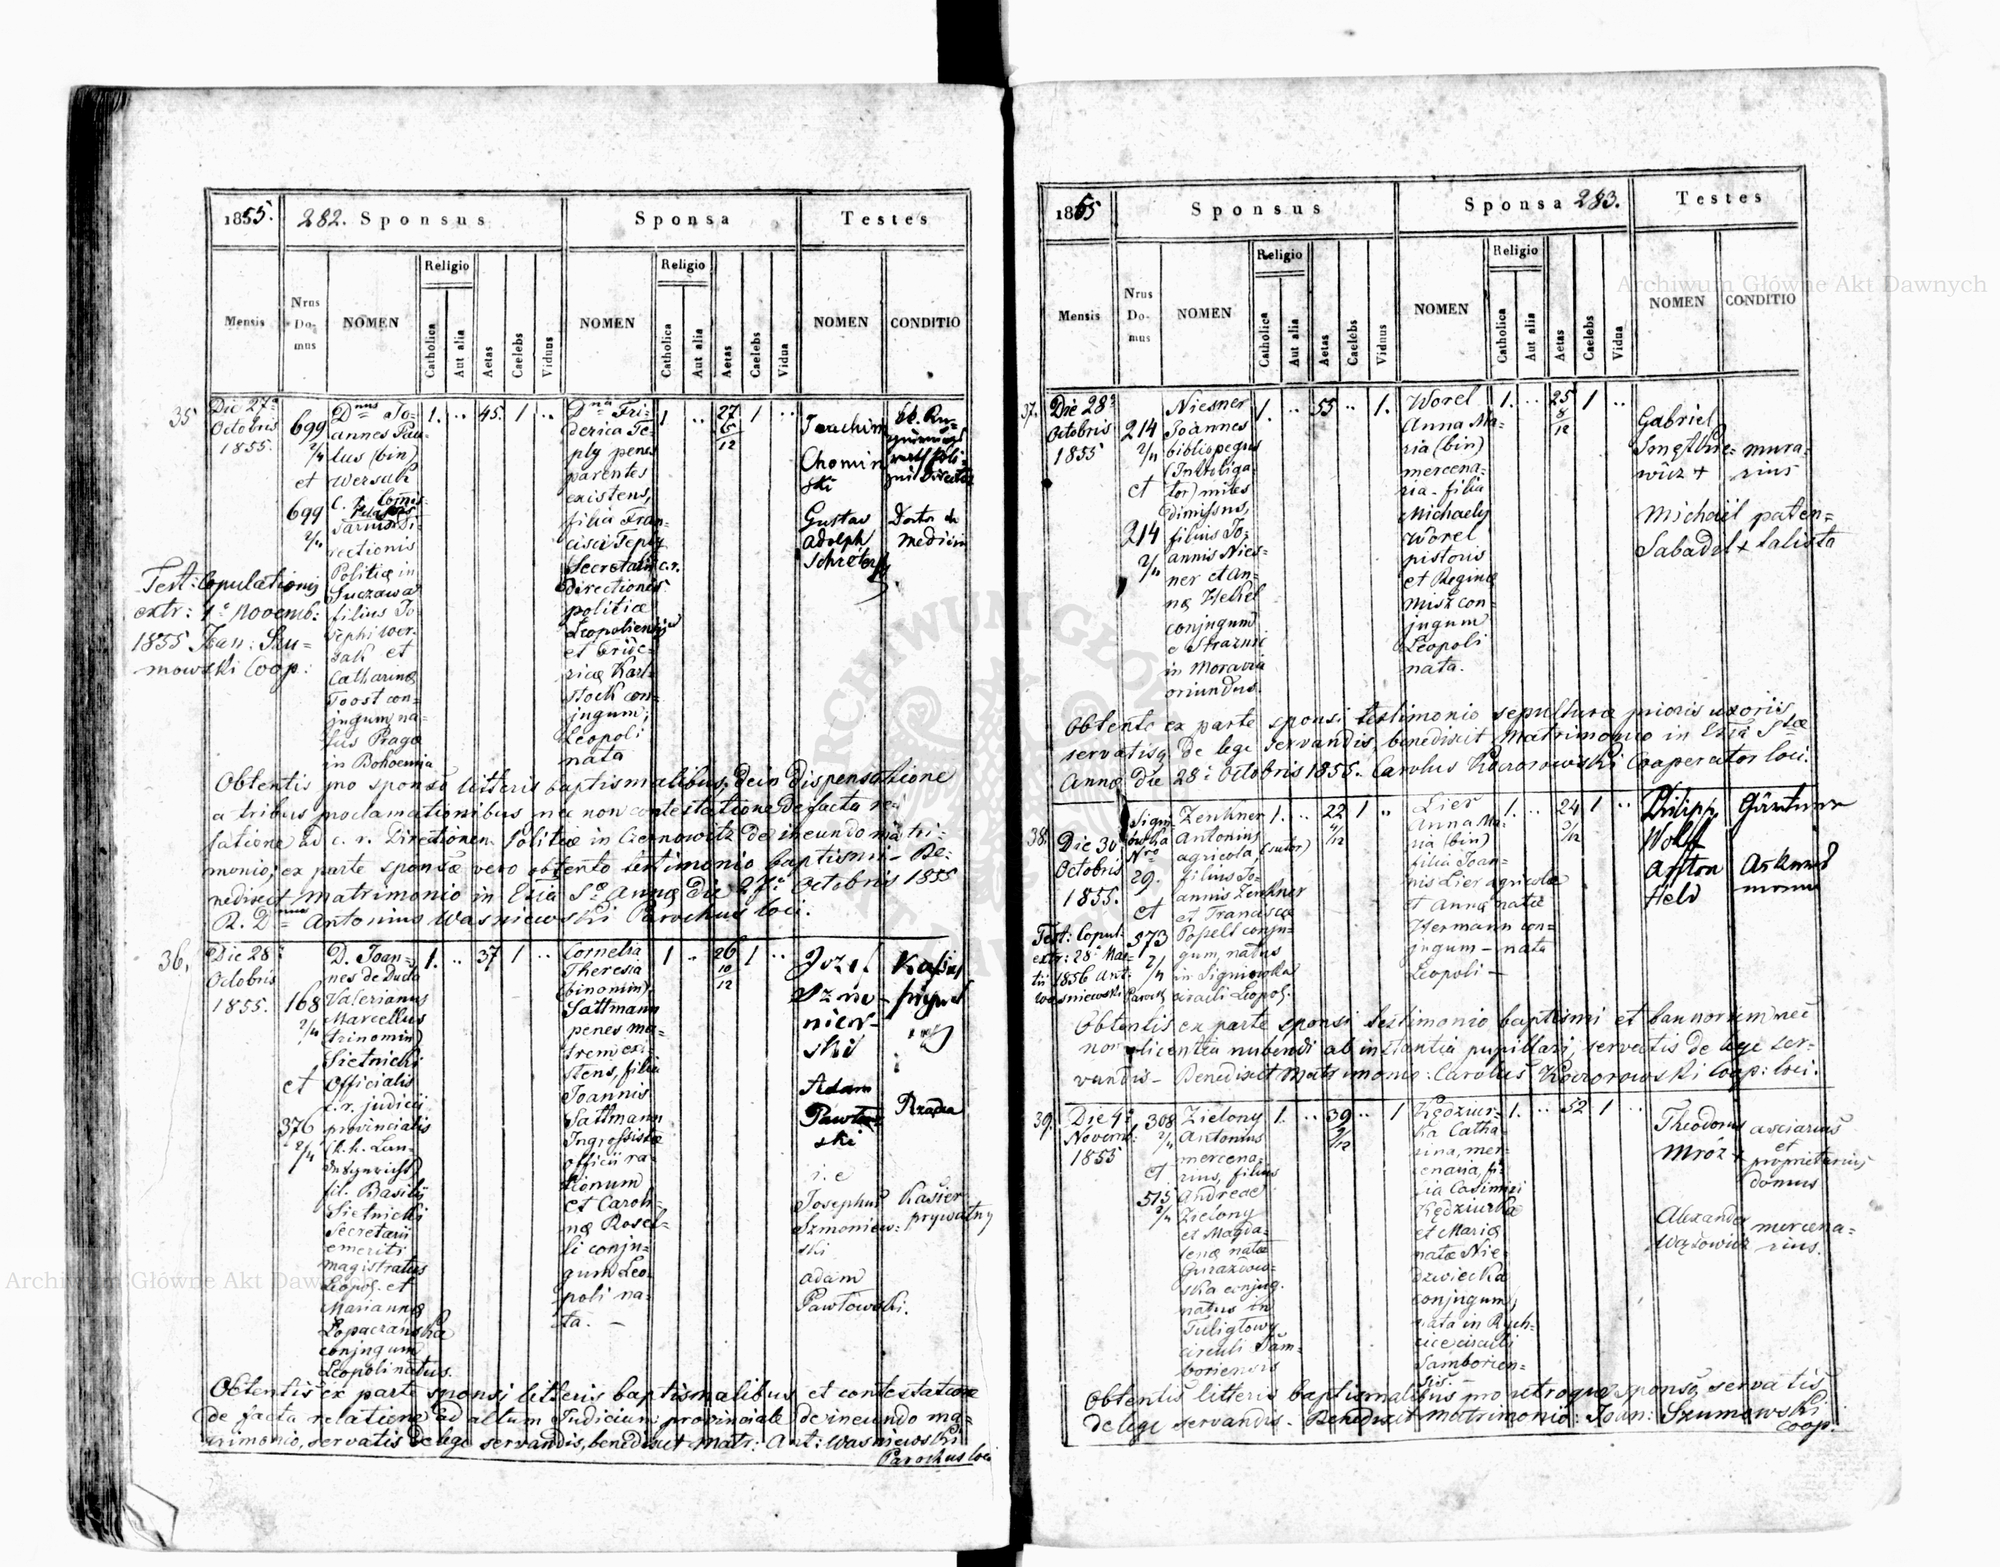 1855. 282. Sponsus Sponsa Testes
Mensis Nrus Domus NOMEN Religio Catholica Aut alia Aetas Caelebs Viduus NOMEN Religio Catholica Aut alia Aetas Caelebs Vidua NOMEN CONDITIO
35
Die 27a
Octobris
1855.
699
2/4
et
699
2/4
Dnus Jo-
annes Pau-
lus (bin)
Wersak
Politiæ in
Suczawa
filius Jo-
sephi Wer-
sak et
Catharinæ
Toost con-
jugum na-
tus Pragæ
in Bohoemia
1. .. 45. 1 ..
Dna Fri-
derica Te-
ply penes
parentes
existens,
filia Fran-
cisci Teply
Secretarii c.r.
directionis
politiæ
Leopoliensis
et Fride-
ricæ Karl-
stock con-
jugum;
Leopoli
nata
1 .. 27 5/12 1 ..
Joachim
Chomin
ski
Gustav
Adolph
Doctor der
Medicin
Test: Copulationis
extr: 1a Novemb:
1855 Joan: Szu-
mowski Coop:
Obtentis pro sponso litteris baptismalibus, dein dispensatione
a tribus proclamationibus nec non contestatione de facta re-
latione ad c. r. Directionem Politiæ in Czernowitz de ineundo matri-
monio; ex parte sponsæ vero obtento testimonio baptismi - Be-
nedixit matrimonio in Eccia S. Annæ die 27a Octobris 1855
R. Dnus Antonius Waśniewski Parochus loci.
36.
Die 28
Octobris
1855.
168
2/4
et
376
2/4
D. Joan-
nes de Duda
Valerianus
Marcellus
(trinomin)
Sietnicki
Officialis
c. r. judicii
provincialis
fil. Basilii
Sietnicki
Secretarii
emeriti
magistratus
Leopol. et
Mariannæ
Łopaczańska
conjugum
Leopoli natus.
1. .. 37 1 ..
Cornelia
Theresia
(binomin)
Sattmann
penes ma-
trem exi-
stens, filia
Joannis
Sattmann
Ingrossistæ
officii ra-
tionum
et Caroli-
næ Rosel-
li conju-
gum Leo-
poli na-
ta. -
1 .. 26 10/12 1 ..
Józef
Szmo-
niew-
ski
Adam
Pawłow-
ski
i. e
Josephus Kasier
Szmoniew- prywatny
ski
Adam
Pawłowski.
Obtentis ex parte sponsi litteris baptismalibus et contestatione
de facta relatione ad altum Judicium provinciale de ineundo ma-
trimonio, servatis de lege servandis, benedixit matr: Ant: Waśniewski
Parochus loci
1855 Sponsus Sponsa 283. Testes
Mensis Nrus Domus NOMEN Religio Catholica Aut alia Aetas Caelebs Viduus NOMEN Religio Catholica Aut alia Aetas Caelebs Vidua NOMEN CONDITIO
37.
Die 28a
Octobris
1855
214
2/4
et
214
2/4
Niesner
Joannes
bibliopegus
(Introliga
tor) miles
dimissus,
filius Jo-
annis Nies-
ner et An-
næ Hekel
conjugum
e Strażnic
in Moravia
oriundus.
1. .. 55 .. 1.
Worel
Anna Ma-
ria (bin)
mercena-
ria - filia
Michaelis
Worel
pistoris
et Reginæ
Misz con-
jugum
Leopoli
nata.
1. .. 25 8/12 1 ..
Gabriel
mura-
wicz + rius
Michaël paten-
Sabadel + talista
Obtento ex parte sponsi testimonio sepulturæ prioris uxoris,
servatisq de lege servandis, benedixit Matrimonio in Ecclia Stæ
Annæ die 28a Octobris 1855. Carolus Koczorowski Cooperator loci.
38.
Die 30
Octobris
1855.
Signi-
ówka
Nro
29.
et
573
2/4
Zenkner
Antonius
agricola, (sutor)
filius Jo-
annis Zenkner
et Franciscæ
Popell conju-
gum, natus
in Signiowka
circuli Leopol.
1. .. 22 4/12 1 ..
Lier
Anna Ma-
ria (bin)
filia Joan-
nis Lier agricolæ
et Annæ natæ
Hermann con-
jugum - nata
Leopoli -
1. .. 24 3/12 1 ..
Philipp Gärtner
Wolff
Anton
Held
Test: Copul:
extr: 28a Mar-
tii 1856 Ant:
Waśniewski Paroch
Obtentis ex parte sponsi testimonio baptismi et bannorum nec
non licentia nubendi ab instantia pupillari, servatis de lege ser-
vandis - Benedixit Matrimonio: Carolus Koczorowski Coop: loci.
39.
Die 4a
Novem:
1855
308
2/4
et
515
2/4
Zielony
Antonius
mercena-
rius, filius
Andreae
Zielony
et Magda-
lenæ natæ
ska conjug.
natus in
Tuligłowy
circuli Sam-
boriensis
1. .. 39 5/12 .. 1
Kędziur-
ka Catha-
rina, mer-
cenaria, fi-
lia Casimiri
Kędziurka
et Mariæ
natæ Nie-
dzwiecka
conjugum,
nata in Rych-
cice circuli
Samborien-
sis. -
1. .. 52 1 ..
Theodorus asciarius
Mróz + et
proprietarius
domus
Alexander mercena-
rius.
Obtentis litteris baptismalibus pro utroque sponso, servatis
de lege servandis - Benedixit matrimonio: Joan: Szumowski
Coop.
Archiwum Główne Akt Dawnych
Archiwum Główne Akt Dawnych